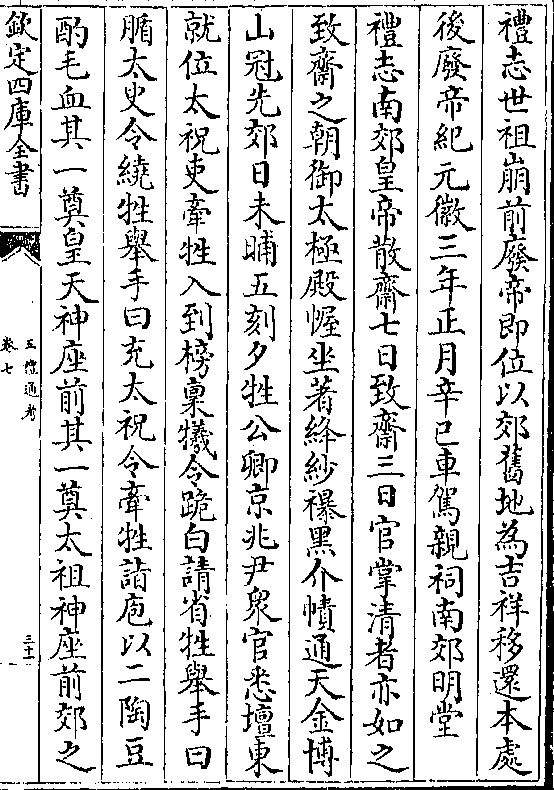 禮志世祖崩前廢帝即位以郊舊地為吉祥移還本處
後廢帝紀元徽三年正月辛巳車駕親祠南郊明堂
禮志南郊皇帝散齋七日致齋三日官掌清者亦如之
致齋之朝御太極殿幄坐著絳紗襮黑介幘通天金博
山冠先郊日未晡五刻夕牲公卿京兆尹衆官悉壇東
就位太祝吏牽牲入到榜稟犧令跪白請省牲舉手曰
腯太史令繞牲舉手曰充太祝令牽牲詣庖以二陶豆
酌毛血其一奠皇天神座前其一奠太祖神座前郊之
欽定四庫全書
五禮通考
卷七
三十一